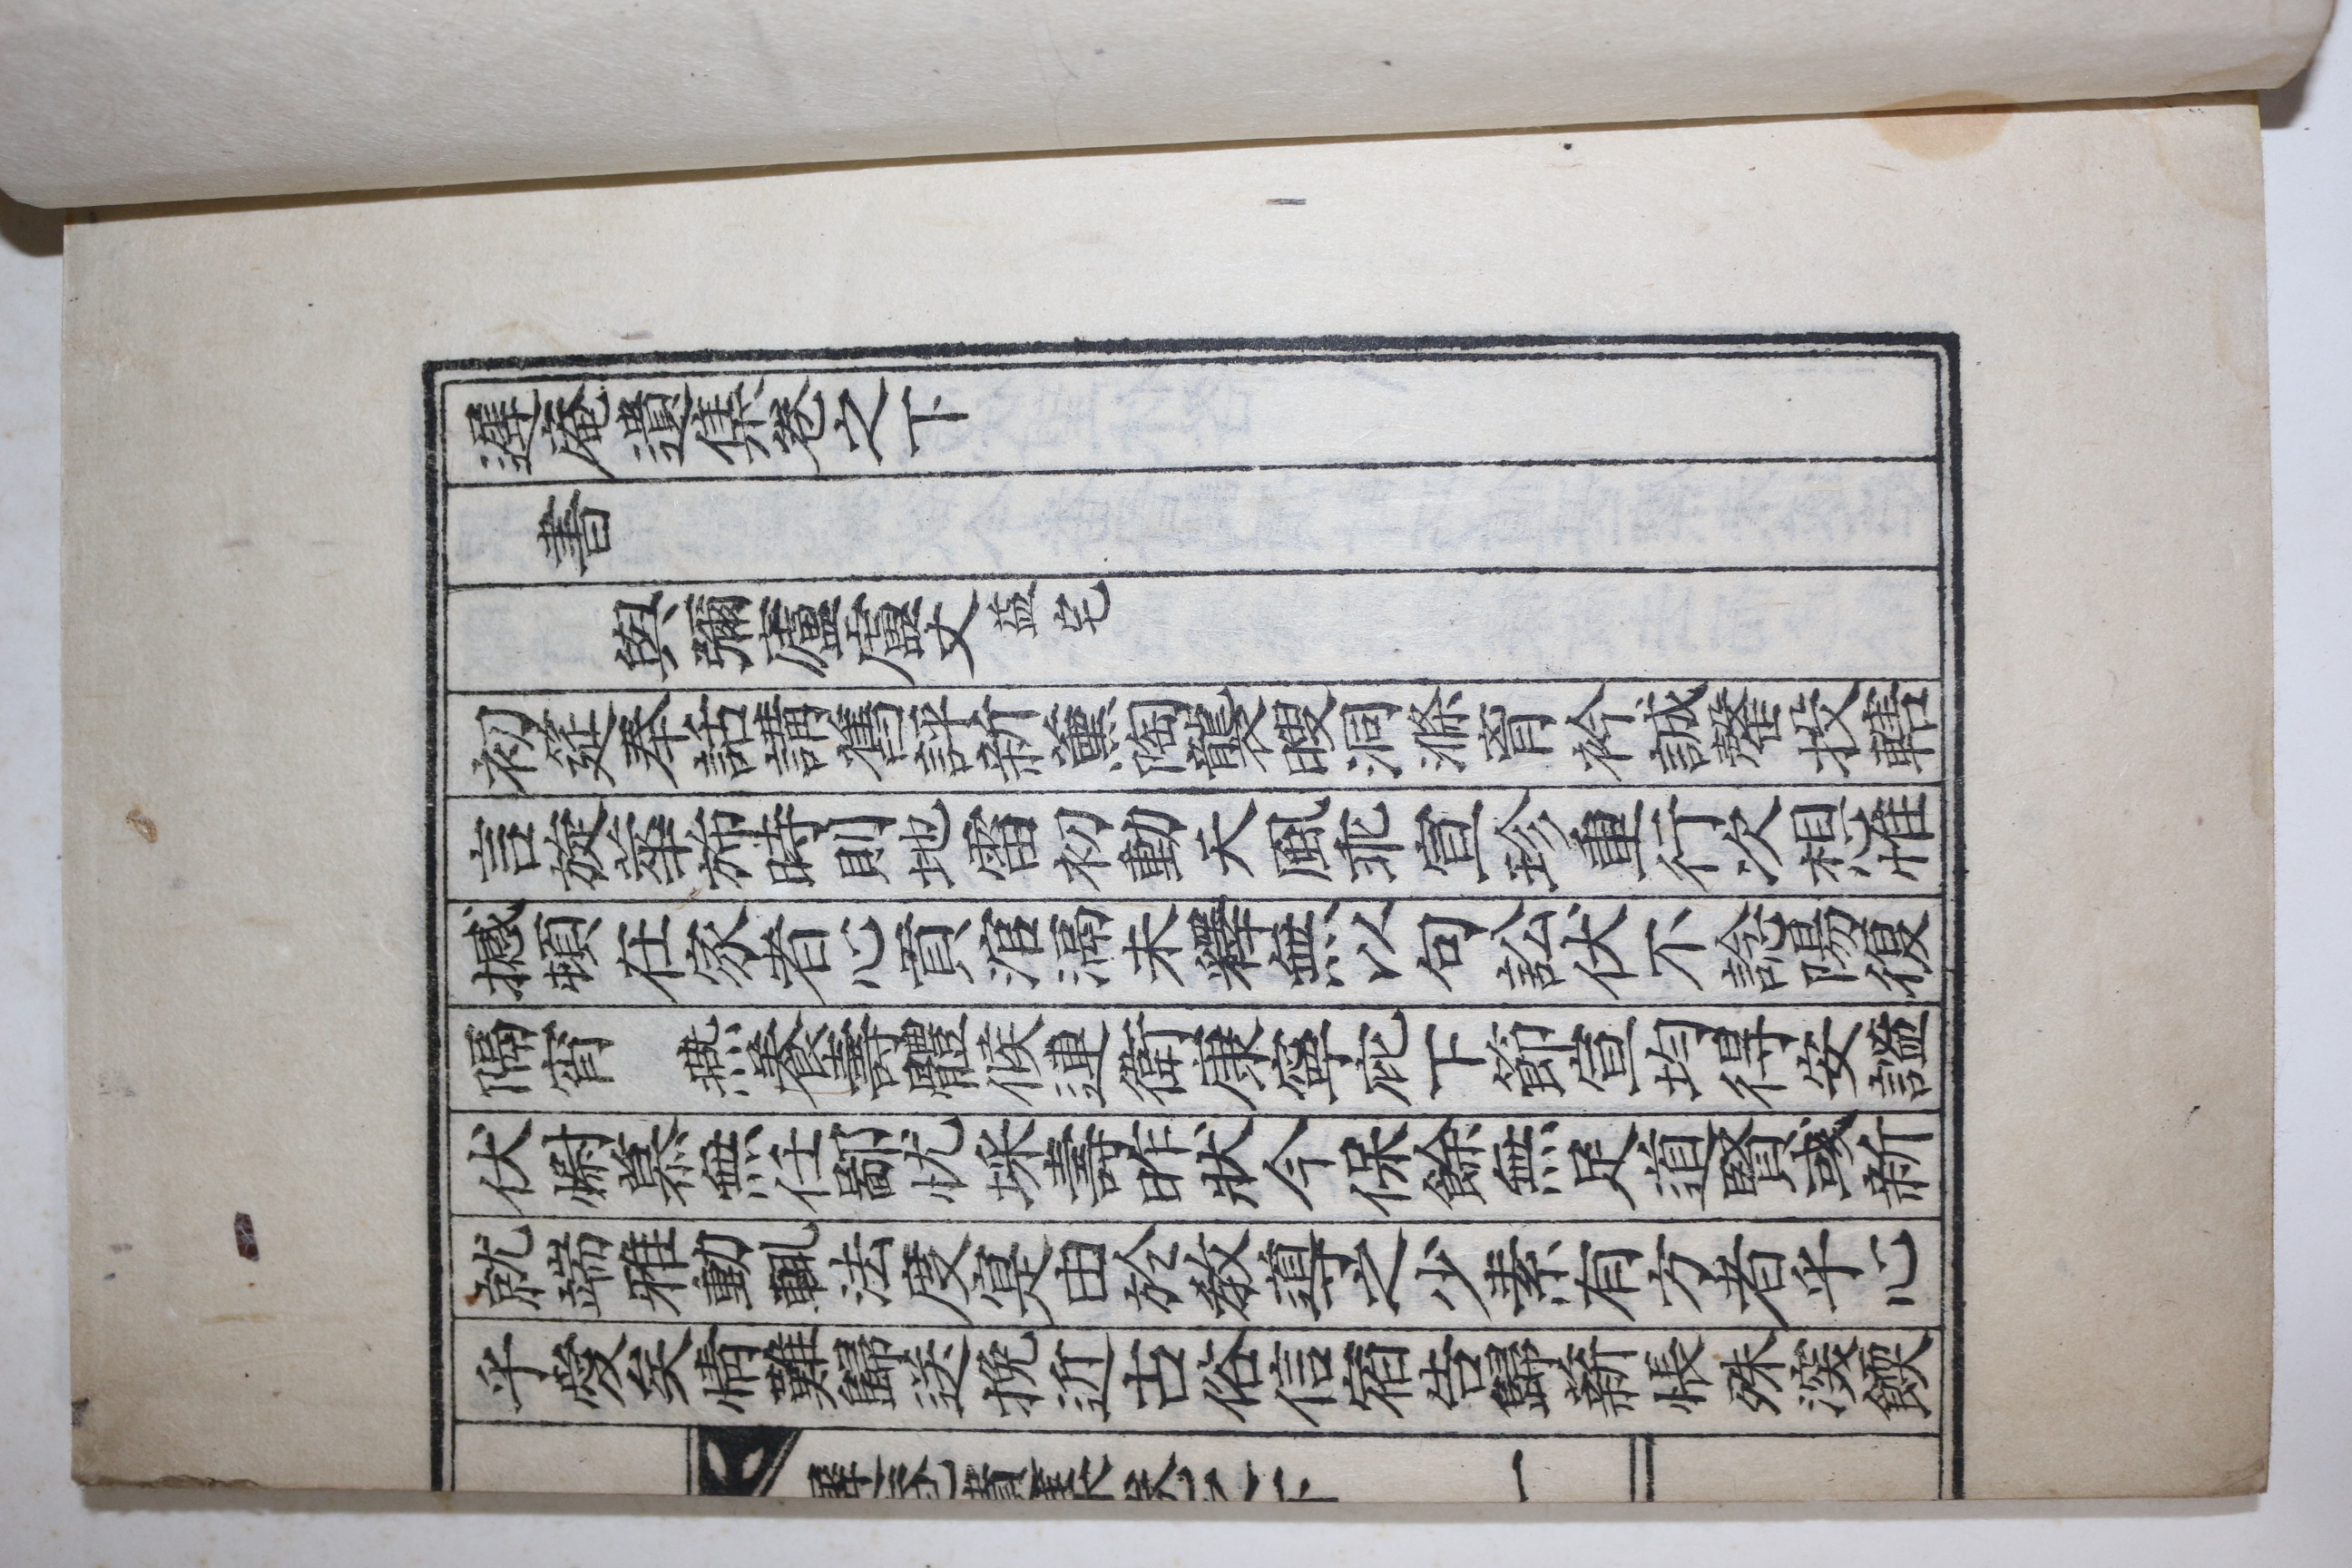 遲庵遺集卷之下
書
與彌廬盧丈益宅
初筵奉話講舊評新薰陶襲䏂洞滌育衿誠罄投轄
言旋華斾時則地雷初動天風乖宣珍重行次想惟
撼頓在家者心貢涫滆未釋無以句訟伏不諗陽復
隔宵 燕養壽體候連衛康寧庇下節宣均得安謐
伏慰慕無任鄙忱埰壽昨狀今保餘無足道賢彧新
就端雅動輒法度寔由於教導之少素有方者乎心
乎愛矣情難歸送挽近古俗信宿告歸薪悵殊深餪
遲庵遺集卷之下 一